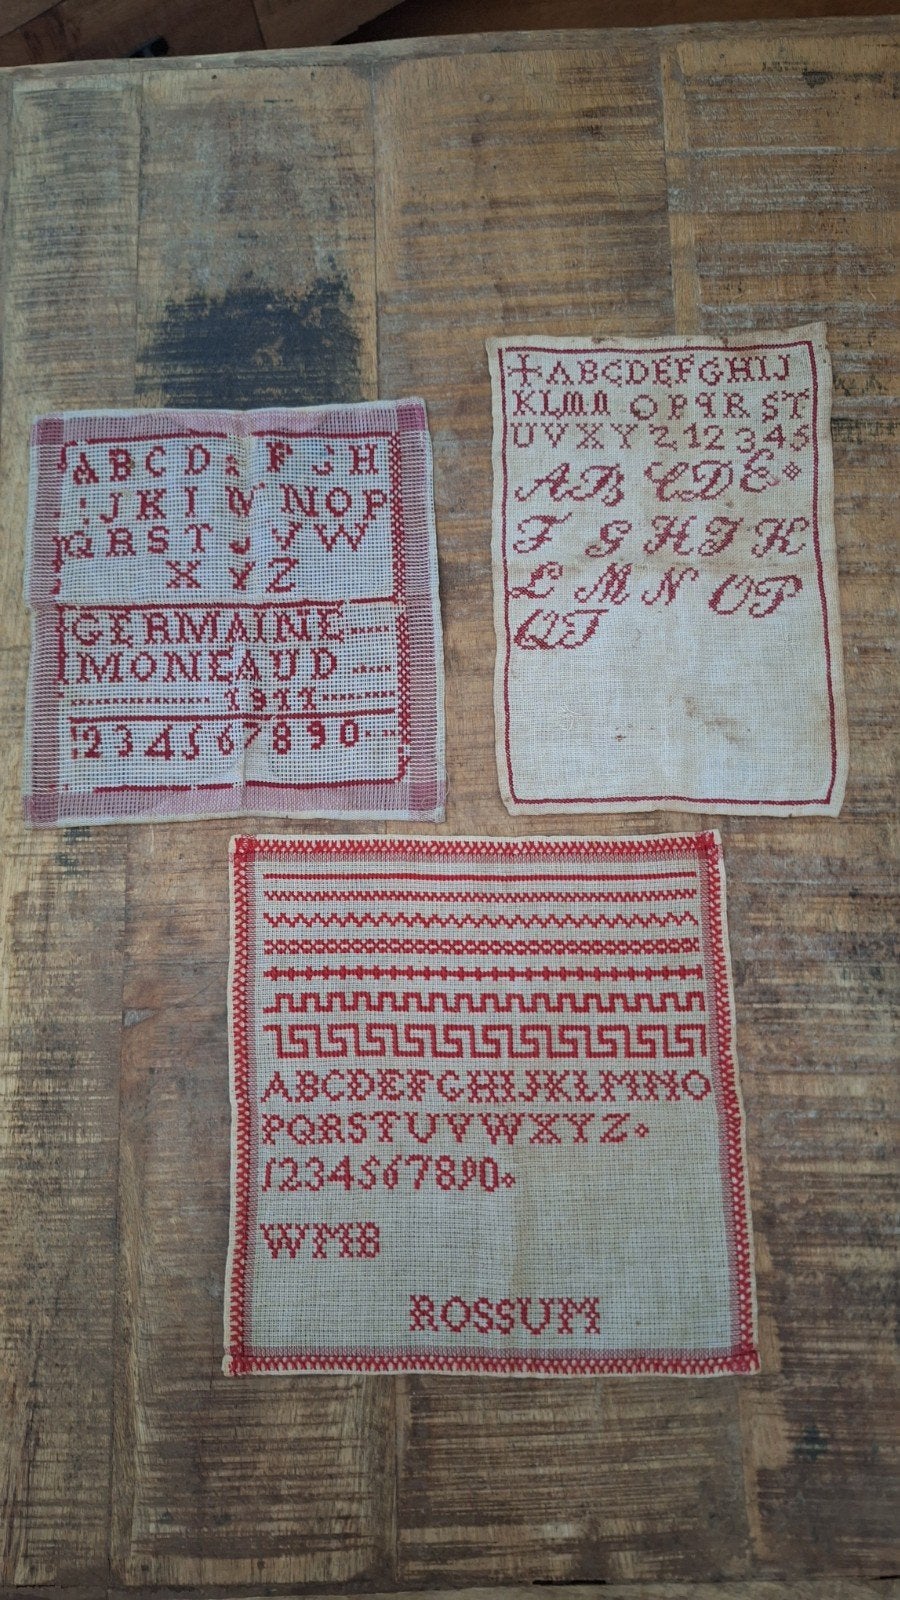 ABCD FGH
IJKLMNOP
QRSTUVW
XYZ
GERMAINE
MONEAUD
1911
1234567890
ABCDEFGHIJ
KLMN OPQRST
UVXYZ12345
ABCDE
FGHJK
LMNOP
QT
ABCDEFGHIJKLMNO
PQRSTUVWXYZ
1234567890
WMB
ROSSUM